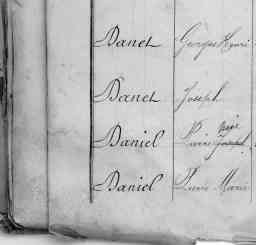 Danet Georges Henri
Danet Joseph
Daniel Pierre Joseph
Daniel Pierre Marie